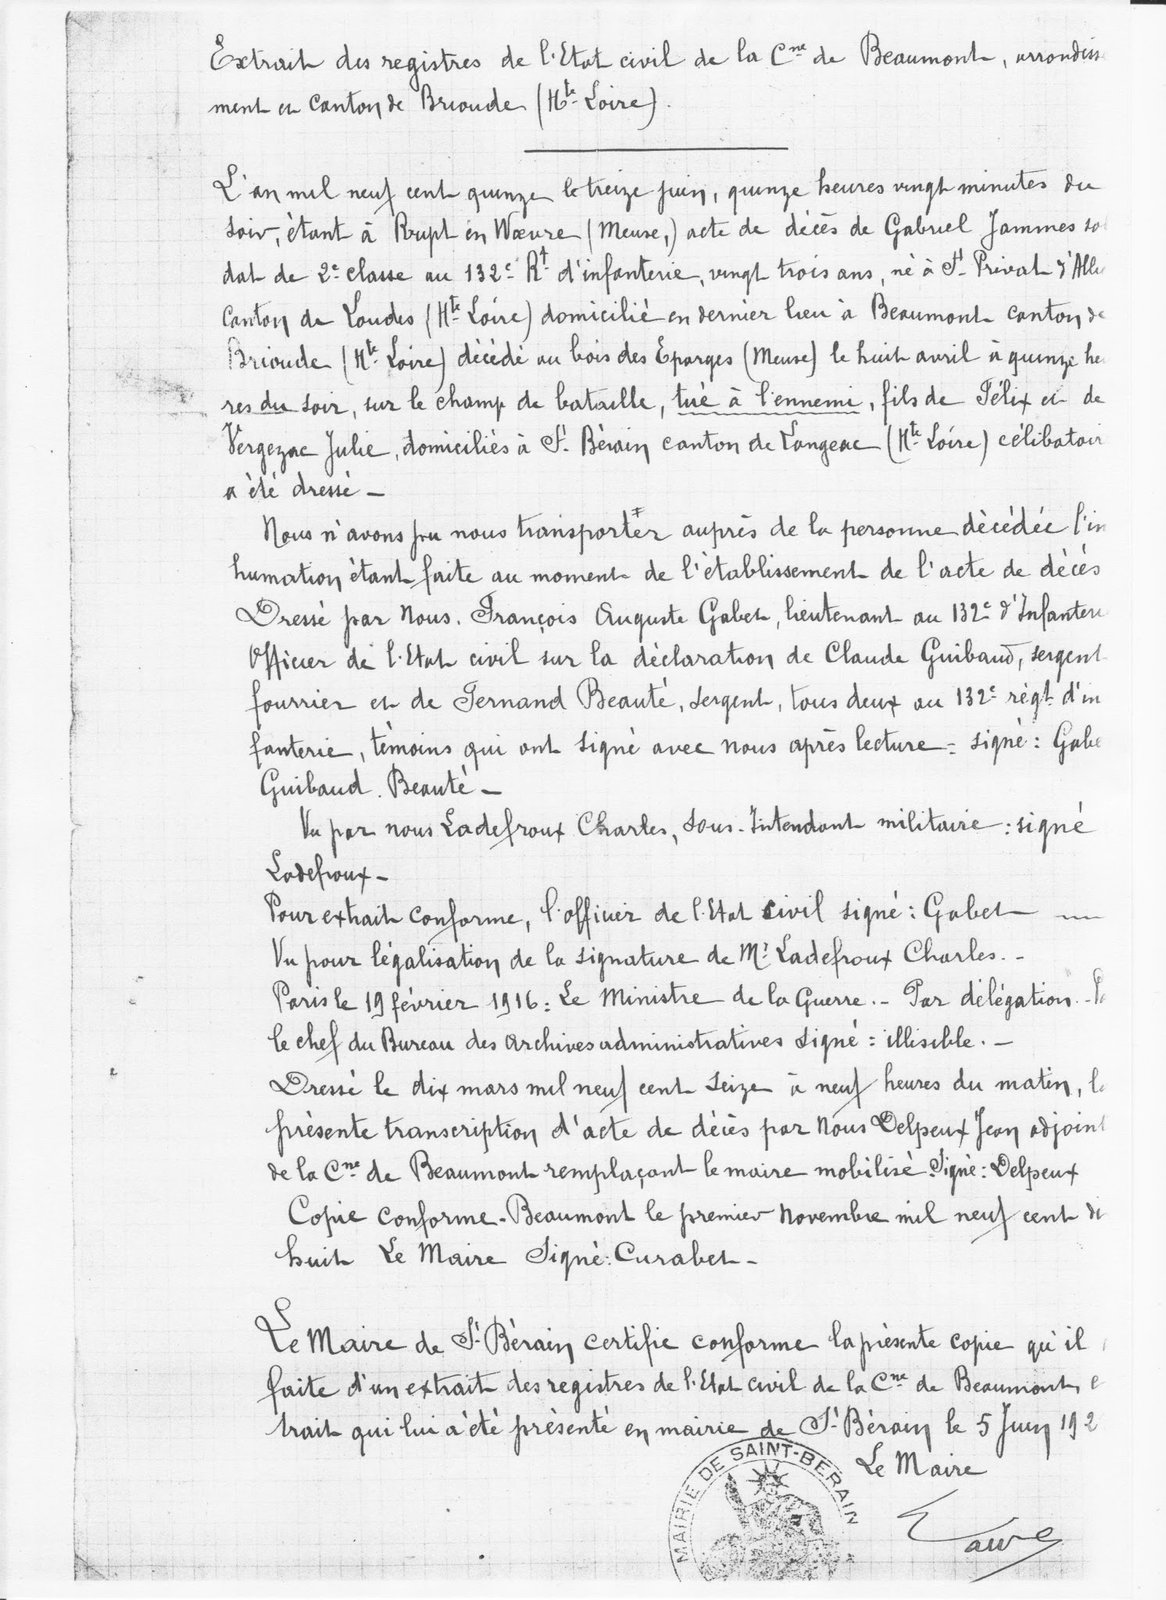 Extrait des registres de l'Etat civil de la Cne de Beaumont, arrondisse
ment et canton de Brioude (Hte Loire).
L'an mil neuf cent quinze le treize juin, quinze heures vingt minutes du
soir, étant à Rupt en Woevre (Meuse,) acte de décès de Gabriel Jammes sol
dat de 2e classe au 132e Rt d'infanterie, vingt trois ans, né à St Privat d'Allier
canton de Loudes (Hte Loire) domicilié en dernier lieu à Beaumont canton de
Brioude (Hte Loire) décédé au bois des Eparges (Meuse) le huit avril à quinze heu
res du soir, sur le champ de bataille, tué à l'ennemi, fils de Félix et de
Vergezac Julie, domiciliés à St Bérain canton de Langeac (Hte Loire) célibatair
a été dressé -
Nous n'avons pu nous transporter auprès de la personne décédée l'in
humation étant faite au moment de l'établissement de l'acte de décès
Dressé par Nous. François Auguste Gabet, lieutenant au 132e d'Infanterie
Officier de l'Etat civil sur la déclaration de Claude Guibaud, sergent
fourrier et de Fernand Beauté, sergent, tous deux au 132e régt d'in
fanterie, témoins qui ont signé avec nous après lecture = signé : Gabe
Guibaud. Beauté -
Vu par nous Ladefroux Charles, Sous-Intendant militaire : signé
Ladefroux -
Pour extrait conforme, l'officier de l'Etat civil signé : Gabet
Vu pour légalisation de la signature de Mr Ladefroux Charles. -
Paris le 19 février 1916 : Le Ministre de la Guerre. - Par délégation. -
le chef du Bureau des archives administratives signé : illisible. -
Dressé le dix mars mil neuf cent seize à neuf heures du matin, la
présente transcription d'acte de décès par Nous Delpeux Jean adjoint
de la Cne de Beaumont remplaçant le maire mobilisé. Signé : Delpeux
Copie conforme. Beaumont le premier Novembre mil neuf cent di
huit Le Maire Signé : Curabet -
Le Maire de St Bérain certifie conforme la présente copie qu'il
faite d'un extrait des registres de l'Etat civil de la Cne de Beaumont, e
trait qui lui a été présenté en mairie de St Bérain le 5 Juin 192
Le Maire
MAIRIE DE SAINT-BERAIN